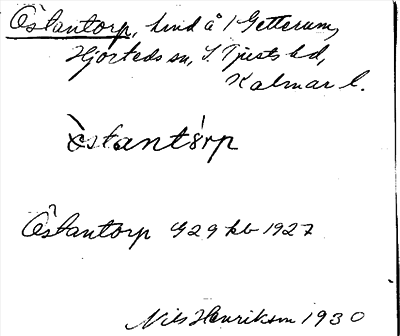 Östantorp, hmd å 1 Getterum,
Hjorteds sn, S. Tjusts hd,
Kalmar l.
östantòrp
Östantorp G29 kb 1927
Nils Henrikson 1930